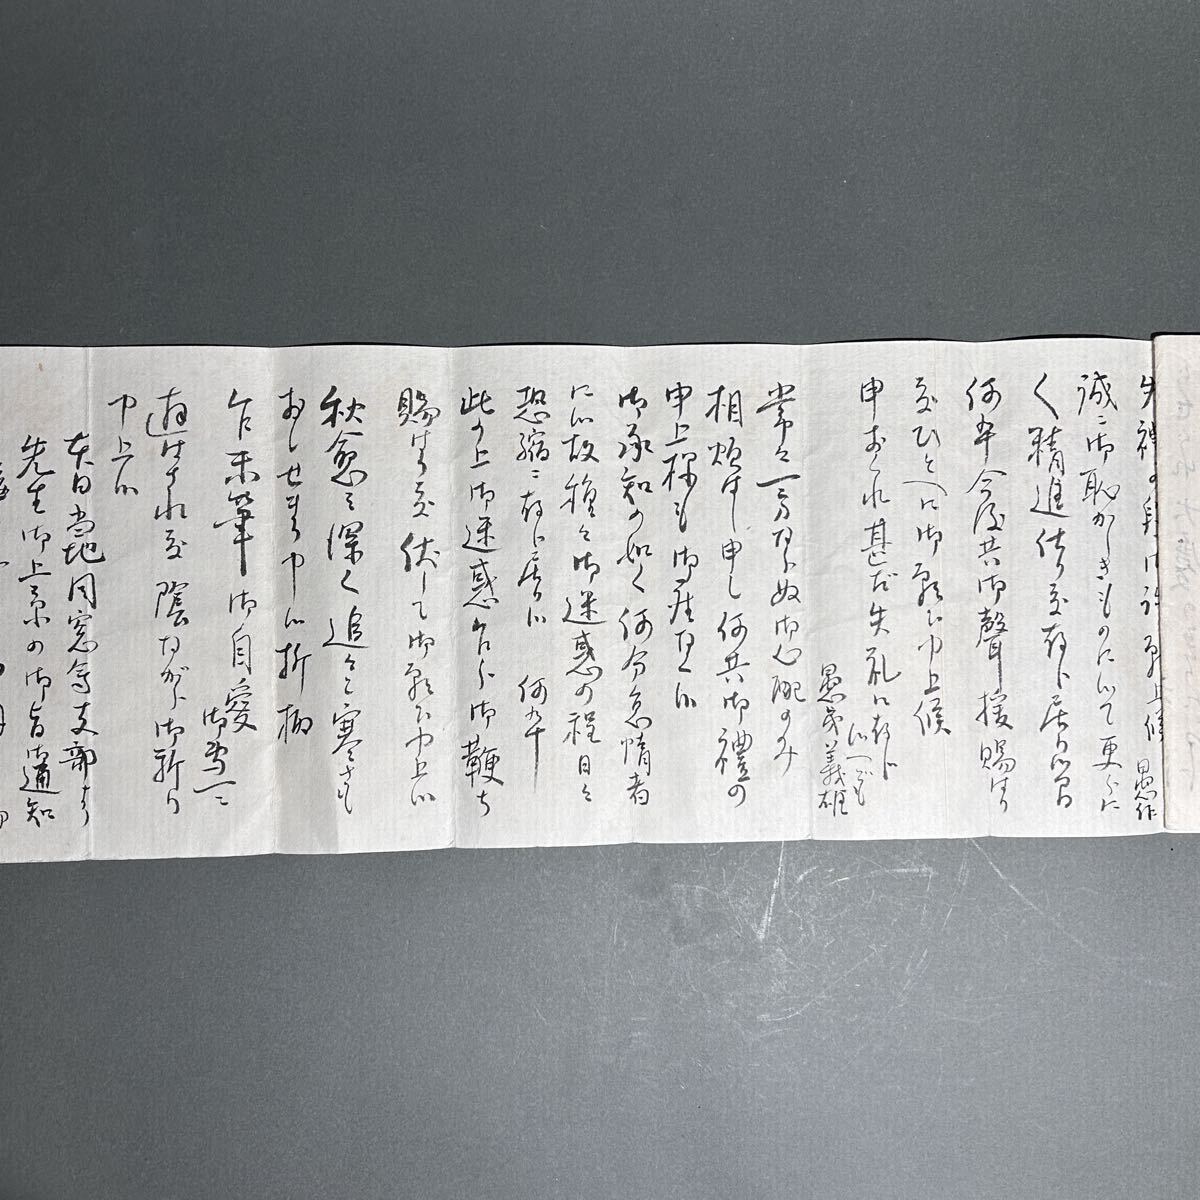 失禮の段は許願上候 愚作
誠ニ御恥かしきものにて更に
く精進仕り度存じ居り候間
何卒今後共御聲援賜はり
度ひとへに御願ひ申上候
申おくれ甚だ失礼に存じ
候へども
愚弟義雄
常々一方ならぬ御心配のみ
相煩はし申し何共御禮の
申上様も御座なく候
御承知の如く何分怠惰者
に候故種々御迷惑の程日々
恐縮ニ存じ居り候 何卒
此の上御迷惑乍ら御鞭ち
賜はり度伏して御願ひ申上候
秋愈々深く追々と寒さも
まし申候折柄
乍末筆御自愛
御専一に
遊はされ度陰ながら御祈り
申上候
本日当地同窓会支部より
先生御上京の御旨御通知